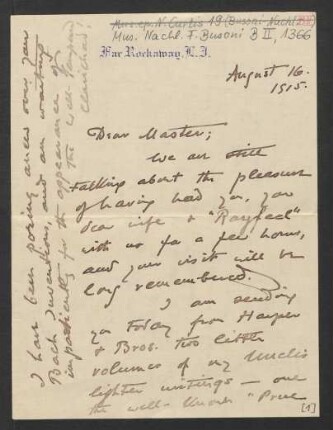 Mus.ep. N. Curtis 19 (Busoni-Nachl. B II)
Mus. Nachl. F. Busoni B II, 1366
Far Rockaway, L.I.
August 16.
1915.
Dear Master;
We are still
talking about the pleasure
of having had you, your
dear wife & "Rayfael"
with us for a few hours,
and your visit will be
long remembered.
I am sending
you today from Harper
& Bros. two little
volumes of my Uncle's
lighter writings — one
the well-known "Prue
[1]
I have been poring anew over your
Bach Inventions, and am waiting
impatiently for the appearance of
the Well-Tempered
Clavichord!